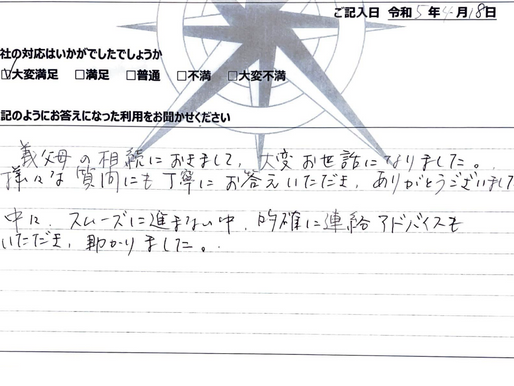 ご記入日 令和 5 年 4 月 18 日
社の対応はいかがでしたでしょうか
☑大変満足 □満足 □普通 □不満 □大変不満
記のようにお答えになった利用をお聞かせください
義父母の相続におきまして、大変お世話になりました。
様々な質問にも丁寧にお答えいただき、ありがとうございまし
中に、スムーズに進まない中、的確に連絡アドバイスも
いただき、助かりました。